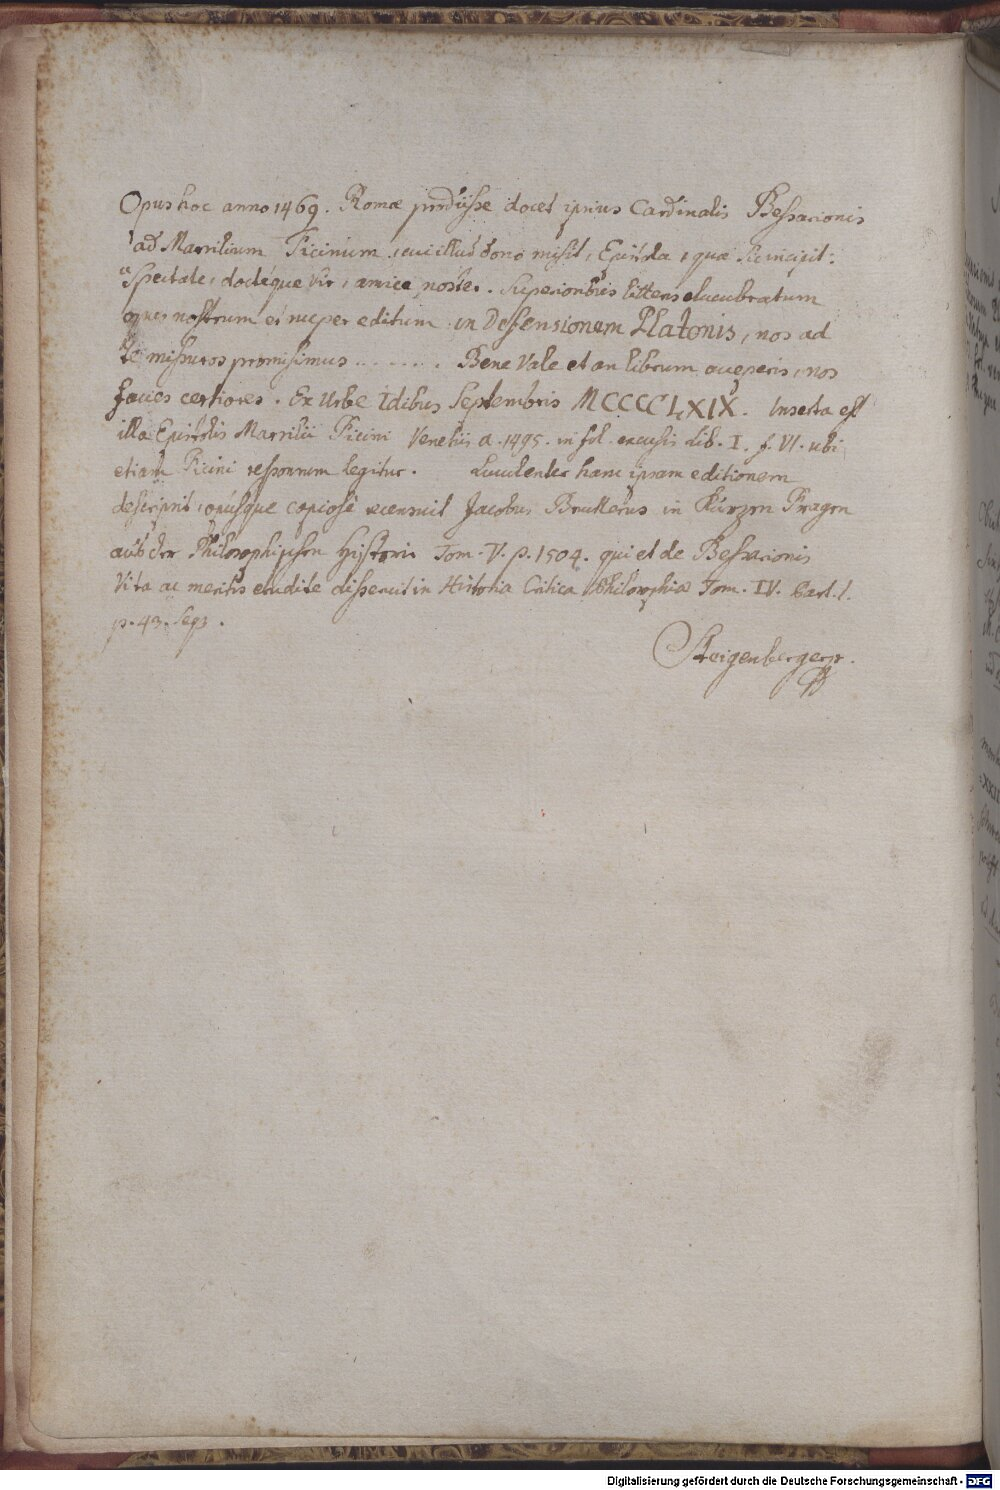 Opus hoc anno 1469. Romæ prodiisse docet ipsius Cardinalis Bessarionis
ad Marsilium Ficinum, cui illud dono misit, Epistola, quæ sic incipit:
"Spectate, docteque Vir, amice noster. Superioribus litteris elucubratum
opus nostrum et nuper editum in Defensionem Platonis, nos ad
te missuros promisimus ....... Bene Vale et an librum acceperis, nos
facies certiores. Ex Urbe Idibus Septembris MCCCCLXIX. Inserta est
illa Epistolis Marsilii Ficini Venetiis a. 1495. in fol. excusis Lib. I. f. VI. ubi
etiam Ficini responsum legitur. Luculenter hanc ipsam editionem
descripsit, opusque copiose recensuit Jacobus Bruckerus in Kurzen Fragen
aus der Philosophischen Historie Tom. V. p. 1504. qui et de Bessarionis
Vita ac meritis erudite disseruit in Historia Critica Philosophiæ Tom. IV. Part. I.
p. 43. seqs.
Steigenberger.
Digitalisierung gefördert durch die Deutsche Forschungsgemeinschaft - DFG